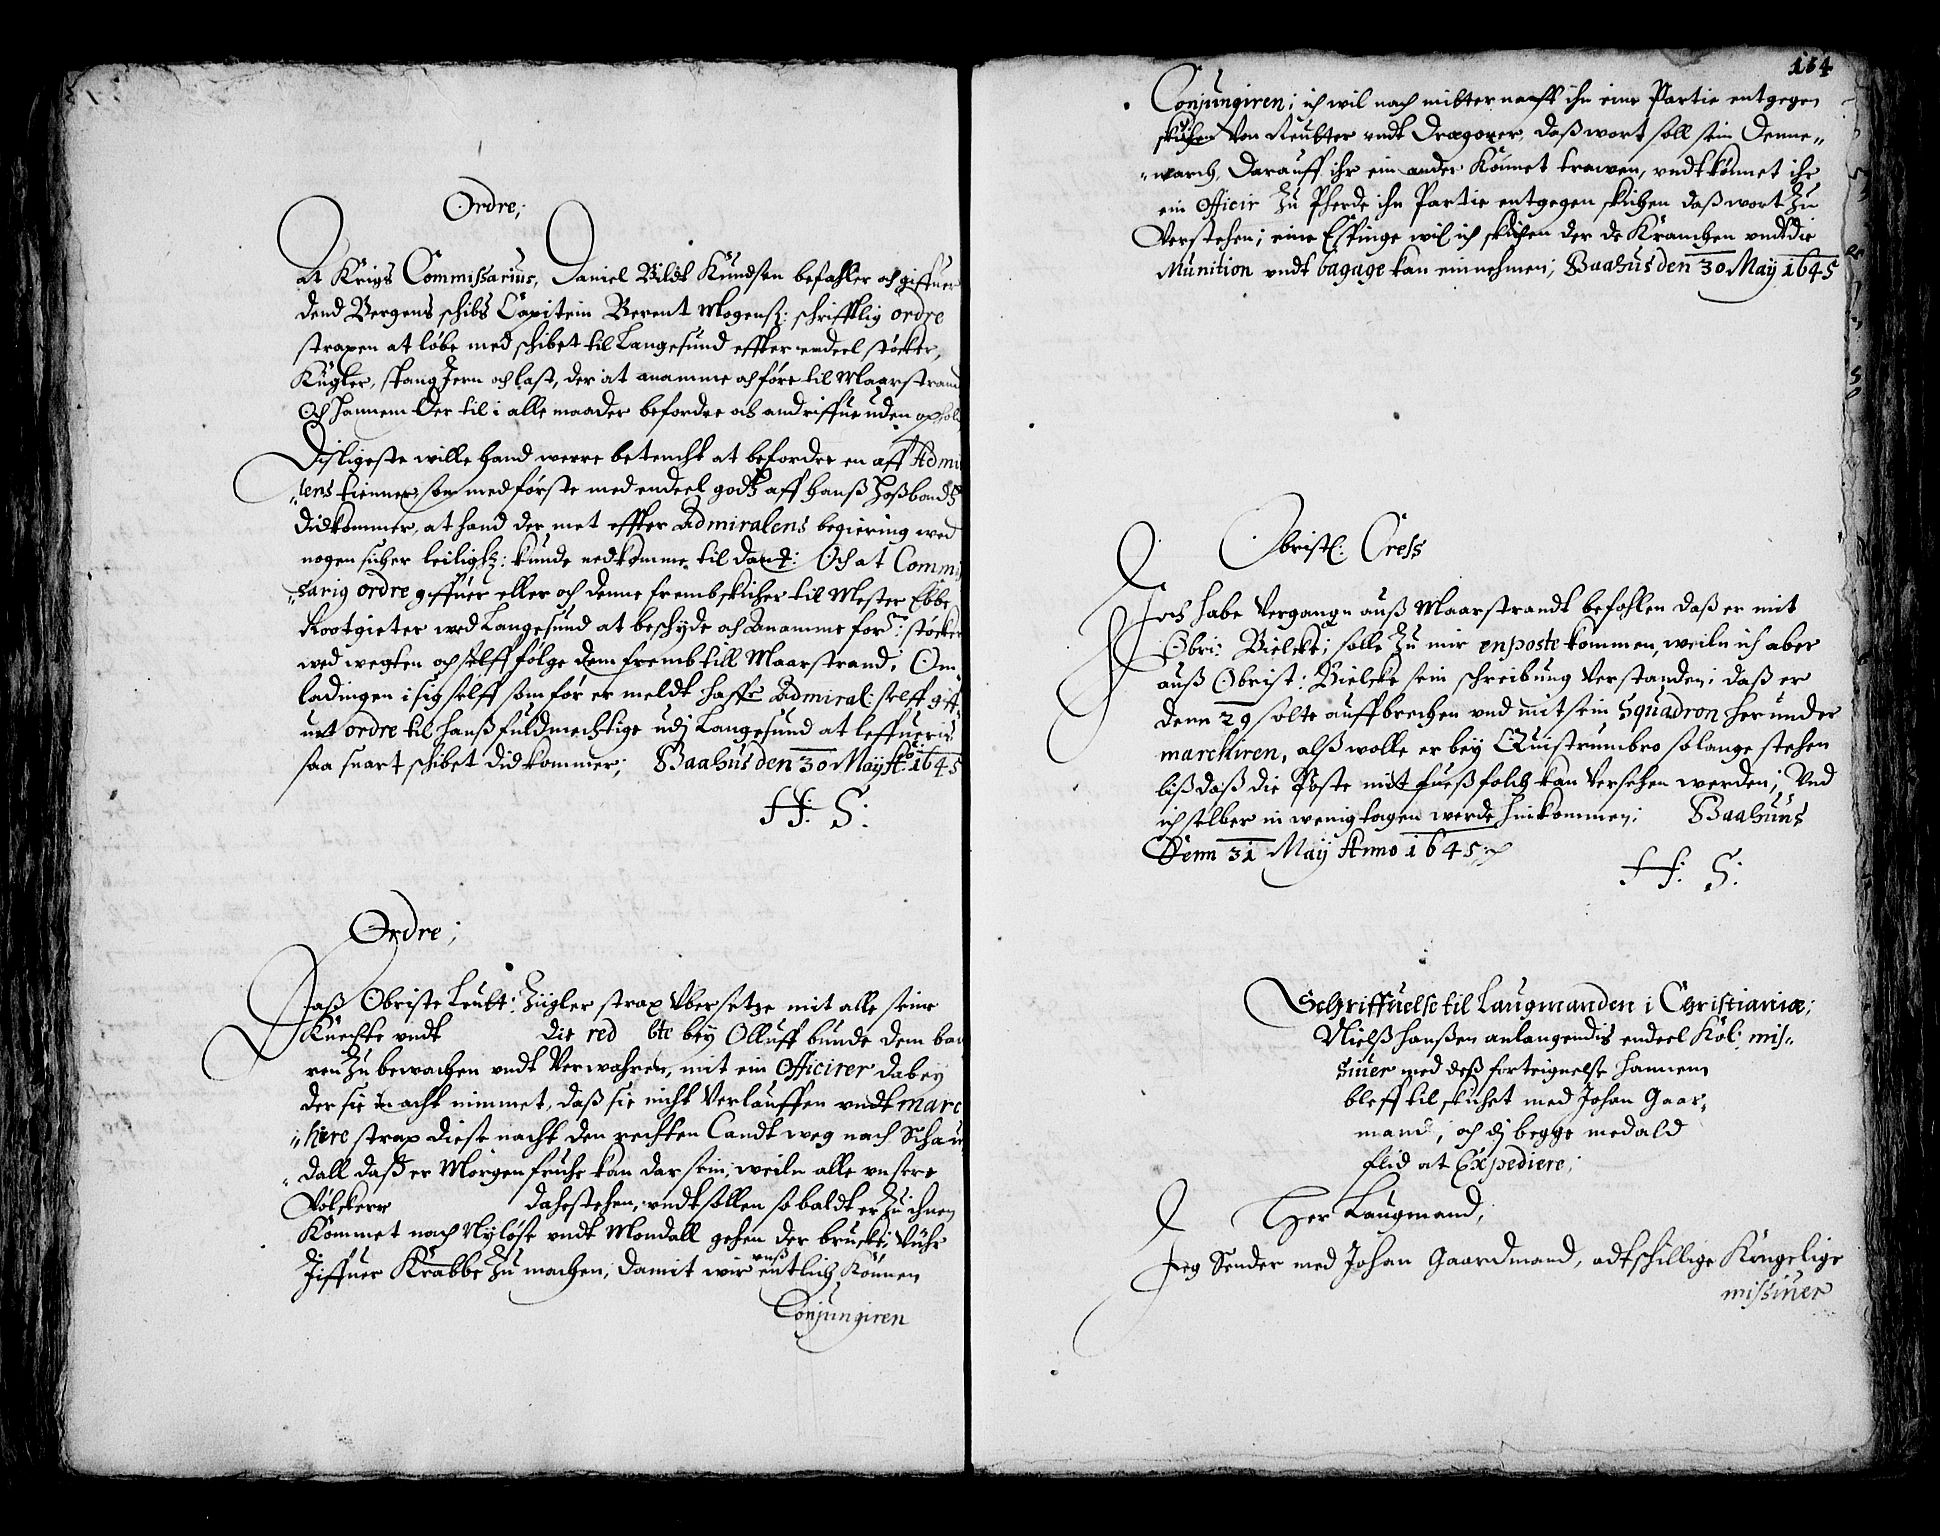 Ordre;
At Krigs Commissarius, Daniel Bildt Knudsen befahler och giffuer
dend Bergens schibs Capitein Berent Mogensz: schrifftlig ordre
straxen at løbe med schibet til Langesund effter endeel støcker,
Kugler, stang Jern och last, der at anamme och føre til Maarstrand
Och hannem der til i alle maader befordre och andriffue uden ophold
Disligeste wille hand werre betencht at befordre en aff Admi
"lens tienner, som med første med endeel godtz aff hanß Hoßbondtz
didkommer, at hand der met effter Admiralens begiering wed
nogen sicher leiligh: kunde nedkomme til Danm: Och at Commis
"sarig ordre giffuer eller och denne frembskicher til Mester Ebbe
Rootgieter wed Langesund at beschyde och Anamme for: støcker
wed wegten och selff følge dem fremb till Maarstrand, Om
ladingen i sig selff som før er meldt haffr Admiral: selff giff
uet ordre til hanß fuldmechtige udj Langesund at leffueris
saa snart schibet did kommer; Baahus den 30 May Ao: 1645
H: S:
Ordre;
Daß Obriste Leutt: Zügler strax Vbersetze mit alle seine
Knechte vndt die red bte bey Olluff bunde dem bau
ren zu bewachen vndt Verwahren, mit ein Officirer dabey
der sie in acht nimmet, daß sie nicht Verlauffen vndt marc
"here strax diese nacht den rechten Landt weg nach Schau
"dall daß er Morgen fruhe kan dar sein, weiln alle vnsere
Völckere dahestehen, vndt sollen so baldt er zu ihnen
Kommet nach Nyløse vndt Mondall gehen der brucke, Vühr
Jiffuer Krabbe zu machen, damit wir vnß entlich Können
Conjungiren
164
Conjungiren; ich wil nach mitternacht ihn eine Partie entgegen
skichen Von Reutter vndt Dragoner, daß wort soll sein Denne"
"march, darauff ihr ein ander Können trawen, vndt könnet ihr
ein Officir zu Pferde ihn Partie entgegen skichen daß wort zu
Verstehen; eine Espinge wil ich skichen der de Krancken vndt die
Munition vndt bagage kan einnehmen; Baahus den 30 May 1645
Obristl: Cress
Ich habe Vergangn auß Maarstrandt befohlen daß er mit
Obri: Bielcke; solle zu mir enposte kommen, weiln ich aber
auß Obrist: Bielcke sein schreibung Verstanden; daß er
denn 29 solte auffbrechen vnd mit sein Squadron herunder
marchiren, alß wolle er bey Quistrumbro so lange stehen
biß daß die Poste mit fueß folck kan Versehen werden; Vnd
ich selber in wenig tagen werde hinkommen; Baahuus
Denn 31 May Anno 1645
H: S:
Schriffuelse til Laugmanden i Christiania;
Nielß Hanßen anlangendis endeel Kol: mis"
"siuer med deß forteignelse hannem
bleff til skichet med Johan Gaar"
mand, och dj begge med ald
flid at Expediere;
Her Laugmand,
Jeg Sender med Johan Gaardmand, adtschillige Kongelige
missiuer